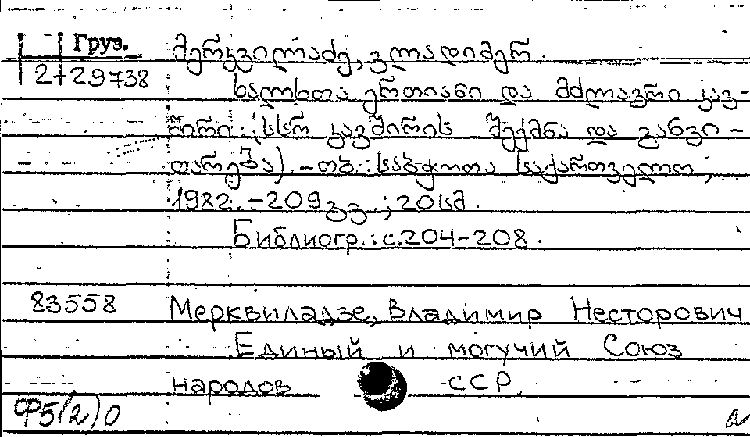 Груз.
2+29738
მერკვილაძე, ვლადიმერ.
ხალხთა ერთიანი და მძლავრი კავ-
შირი: (სსრ კავშირის შექმნა და განვი-
თარება). - თბ.: საბჭოთა საქართველო,
1982. - 209 გვ.; 20 სმ.
Библиогр.: с. 204-208.
83558
Мерквиладзе, Владимир Несторович
Единый и могучий Союз
народов ССР
Ф5(2)0